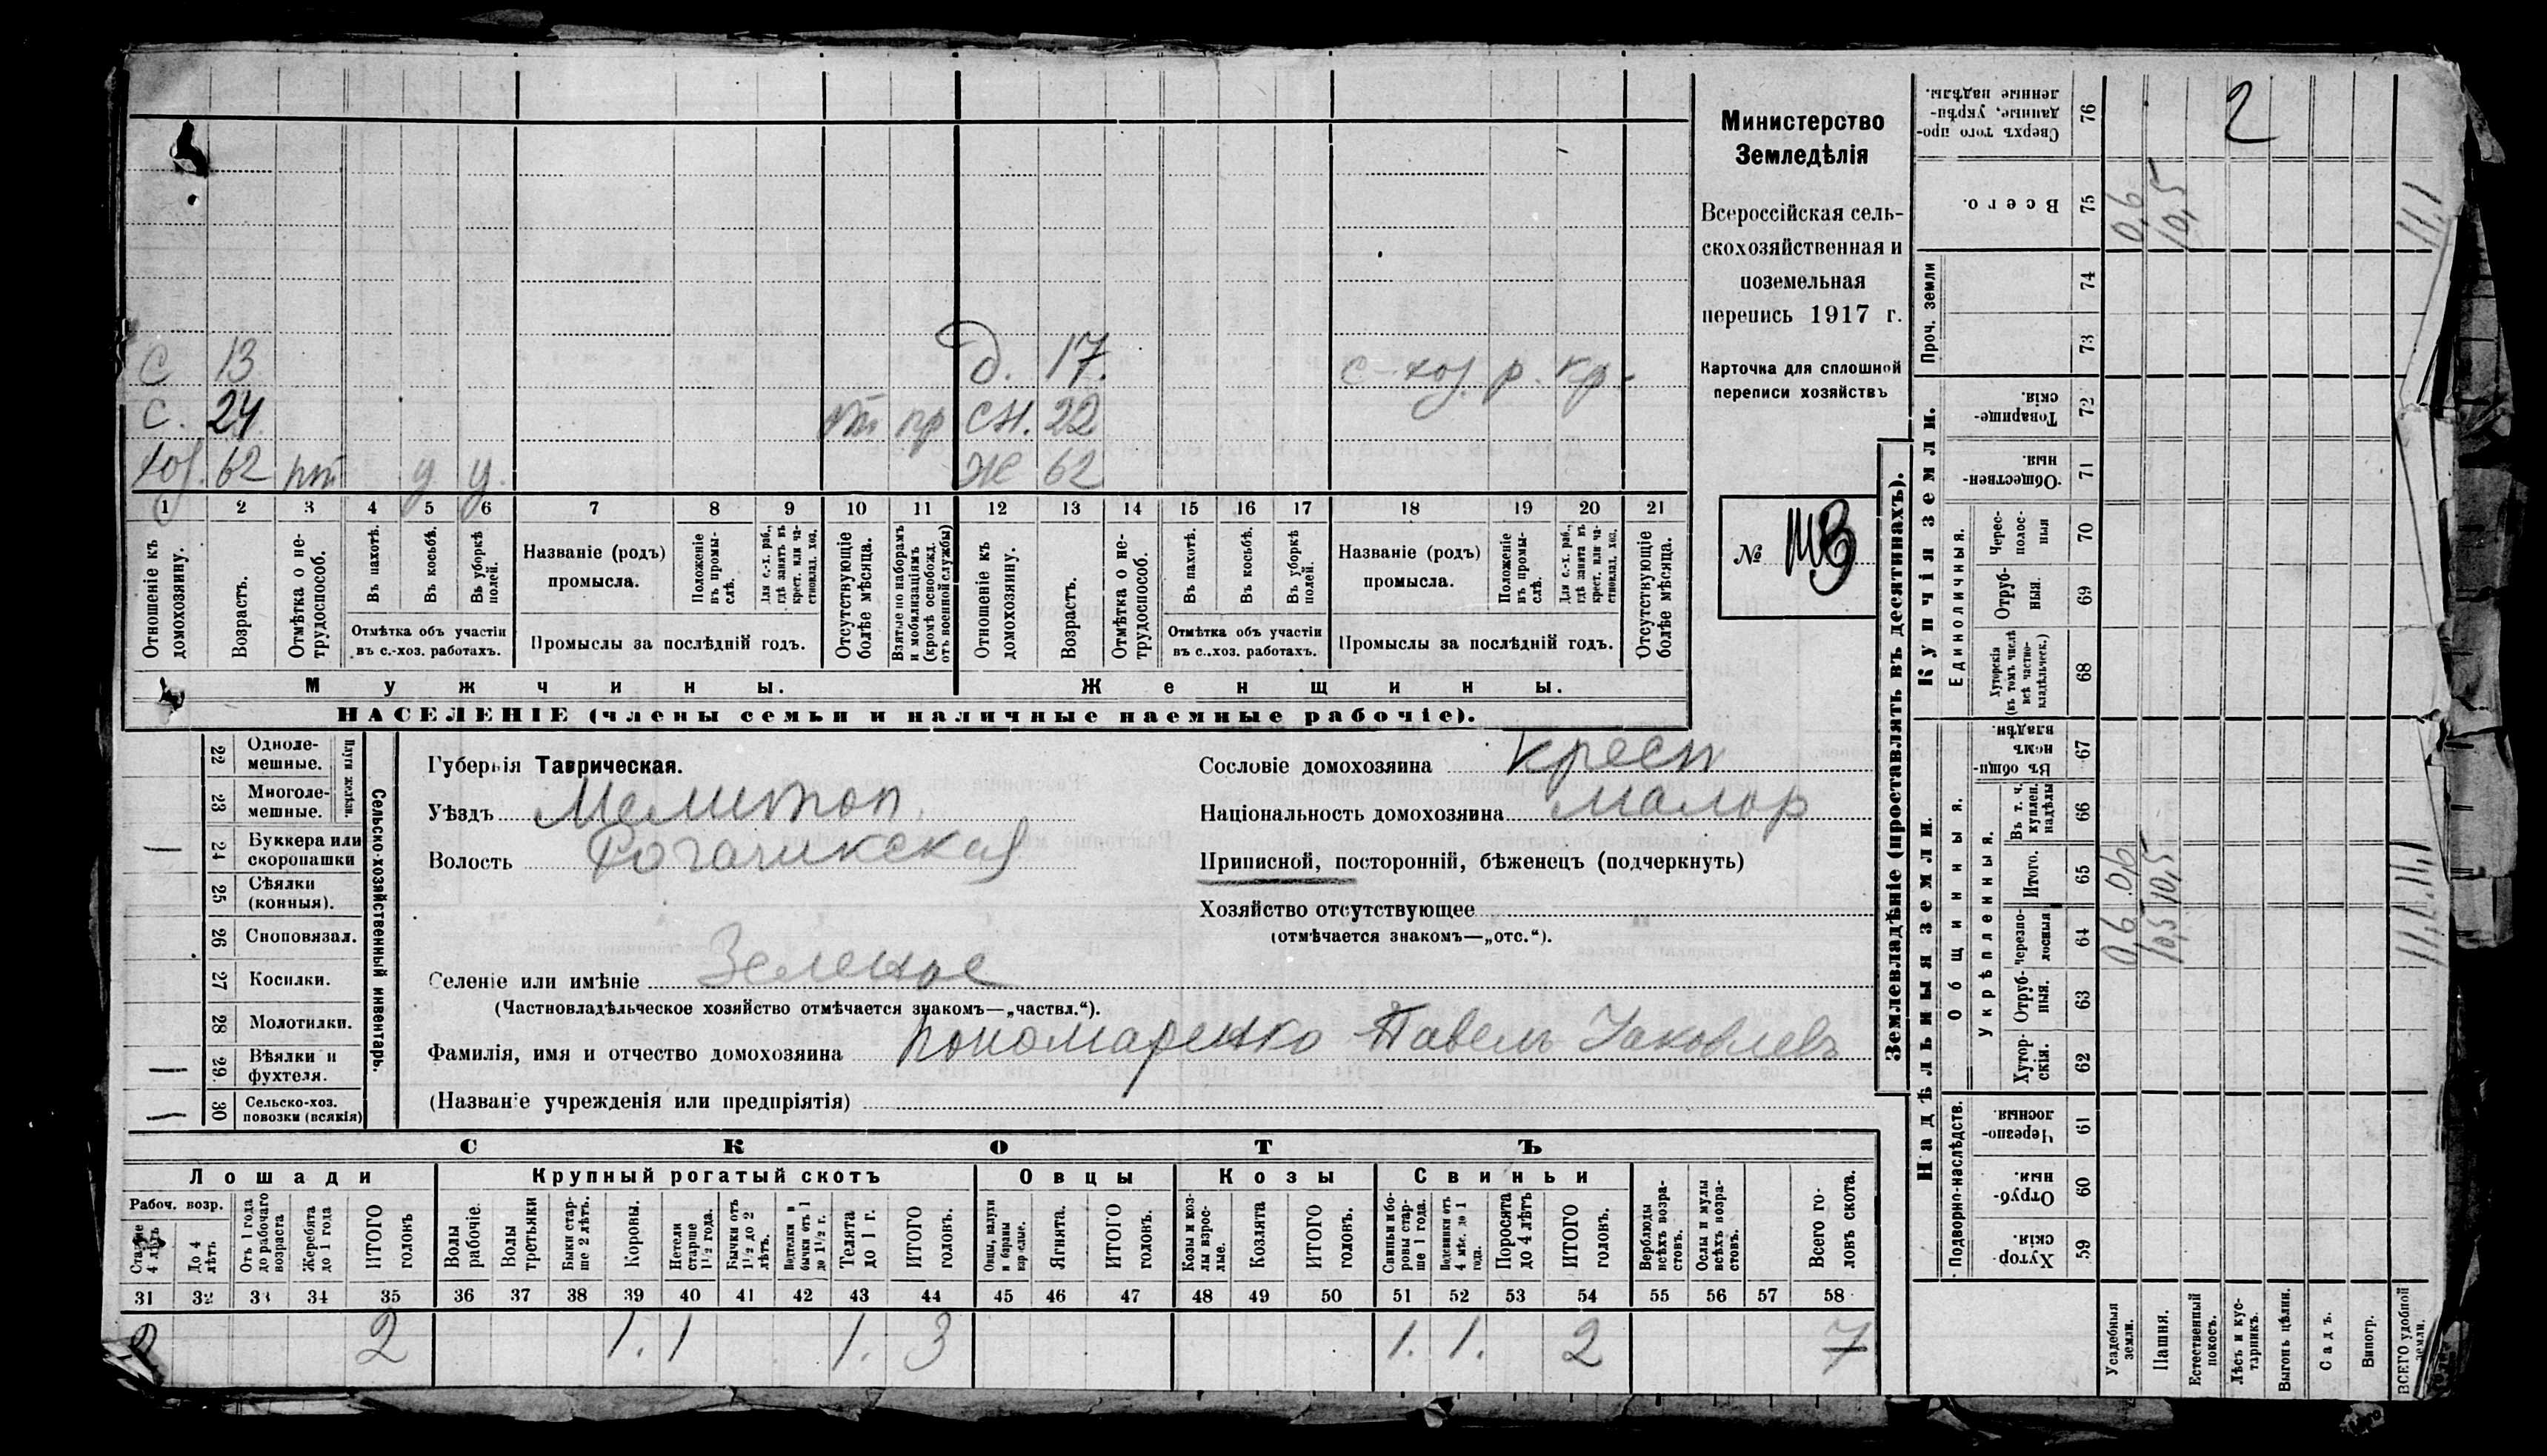 Министерство
Земледѣлія
Всероссійская сель-
скохозяйственная и
поземельная
перепись 1917 г.
Карточка для сплошной
переписи хозяйствъ
№
С 13 Д. 17. с-хоз. р. кр.
С. 24 пр сн. 22
хоз. 62 у у. ж 62
1 2 3 4 5 6 7 8 9 10 11 12 13 14 15 16 17 18 19 20 21
Отношеніе къ домохозяину.
Возрастъ.
Отмѣтка о не-
трудоспособ.
Въ пахотѣ.
Въ косьбѣ.
Въ уборкѣ
полей.
Отмѣтка объ участіи
въ с.-хоз. работахъ.
Названіе (родъ)
промысла.
Положеніе
въ промы-
слѣ.
Для с.-х. раб.,
гдѣ занятъ въ
крест. или ча-
стновлад. хоз.
Промыслы за послѣдній годъ.
Отсутствующіе
болѣе мѣсяца.
Взятые по наборамъ
и мобилизаціямъ
(кромѣ освобожд.
отъ военной службы)
Отношеніе къ
домохозяину.
Возрастъ.
Отмѣтка о не-
трудоспособ.
Въ пахотѣ.
Въ косьбѣ.
Въ уборкѣ
полей.
Отмѣтка объ участіи
въ с.-хоз. работахъ.
Названіе (родъ)
промысла.
Положеніе
въ промы-
слѣ.
Для с.-х. раб.,
гдѣ занята въ
крест. или ча-
стновлад. хоз.
Промыслы за послѣдній годъ.
Отсутствующіе
болѣе мѣсяца.
Мужчины.
Женщины.
НАСЕЛЕНІЕ (члены семьи и наличные наемные рабочіе).
22 Одноле-
мешные.
23 Многоле-
мешные.
Плуги желѣзн.
— 24 Буккера или
скоропашки
25 Сѣялки
(конныя).
26 Сноповязал.
27 Косилки.
28 Молотилки.
— 29 Вѣялки и
фухтеля.
— 30 Сельско-хоз.
повозки (всякія)
Сельско-хозяйственный инвентарь.
Губернія Таврическая.
Уѣздъ Мелитоп
Волость Рогачикская
Селеніе или имѣніе Зеленое
(Частновладѣльческое хозяйство отмѣчается знакомъ—„частвл.“).
Фамилія, имя и отчество домохозяина Пономаренко Павелъ Яковлевъ
(Названіе учрежденія или предпріятія)
Сословіе домохозяина крест
Національность домохозяина малор
Приписной, посторонній, бѣженецъ (подчеркнуть)
Хозяйство отсутствующее
(отмѣчается знакомъ—„отс.“).
СКОТЪ
Лошади
Крупный рогатый скотъ
Овцы
Козы
Свиньи
Рабоч. возр.
Старше
4 лѣтъ
До 4
лѣтъ
Отъ 1 года
до рабочаго
возраста
Жеребята
до 1 года
ИТОГО
головъ
Волы
рабочіе.
Волы
третьяки
Быки стар-
ше 2 лѣтъ.
Коровы.
Нетели
старше
1½ года.
Бычки отъ
1½ до 2
лѣтъ.
Подтелки и
бычки отъ 1
до 1½ г.
Телята
до 1 г.
ИТОГО
головъ.
Овцы, валухи
и бараны
взрослые.
Ягнята.
ИТОГО
головъ.
Козы и коз-
лы взрос-
лые.
Козлята
ИТОГО
головъ.
Свиньи и бо-
ровы стар-
ше 1 года.
Подсвинки отъ
4 мѣс. до 1
года.
Поросята
до 4 лѣтъ
ИТОГО
головъ.
Верблюды
всѣхъ возра-
стовъ.
Ослы и мулы
всѣхъ возра-
стовъ.
Всего го-
ловъ скота.
31 32 33 34 35 36 37 38 39 40 41 42 43 44 45 46 47 48 49 50 51 52 53 54 55 56 57 58
2 2 1. 1 1. 3 1. 1. 2 7
Землевладѣніе (проставлять въ десятинахъ).
Надѣльныя земли.
Купчія земли.
Проч. земли
Подворно-наслѣдств.
Общинныя.
Укрѣпленныя.
Единоличныя.
Сверхъ того про-
данные, укрѣп-
ленные надѣлы.
76
2
Всего.
75
0,6
10,5
11,1
74
73
Товарище-
скія.
72
Обществен-
ныя.
71
Черес-
полос-
ныя
70
Отруб-
ныя.
69
Хуторскія
(въ томъ числѣ
всѣ частно-
владѣльческ.)
68
Въ общи-
номъ
владѣн.
67
Въ т. ч.
куплен.
надѣлы
66
Итого.
65
0,6
10,5
11,1
Черезпо-
лосныя
64
0,6
10,5
11,1
Отруб-
ныя.
63
Хутор-
скія.
62
Черезпо-
лосныя
61
Отруб-
ныя.
60
Хутор-
скія.
59
Усадебныя
земли.
Пашня.
Естественный
покосъ.
Лѣсъ и кус-
тарникъ.
Выгонъ цѣлин.
Садъ.
Виногр.
ВСЕГО удобной
земли.